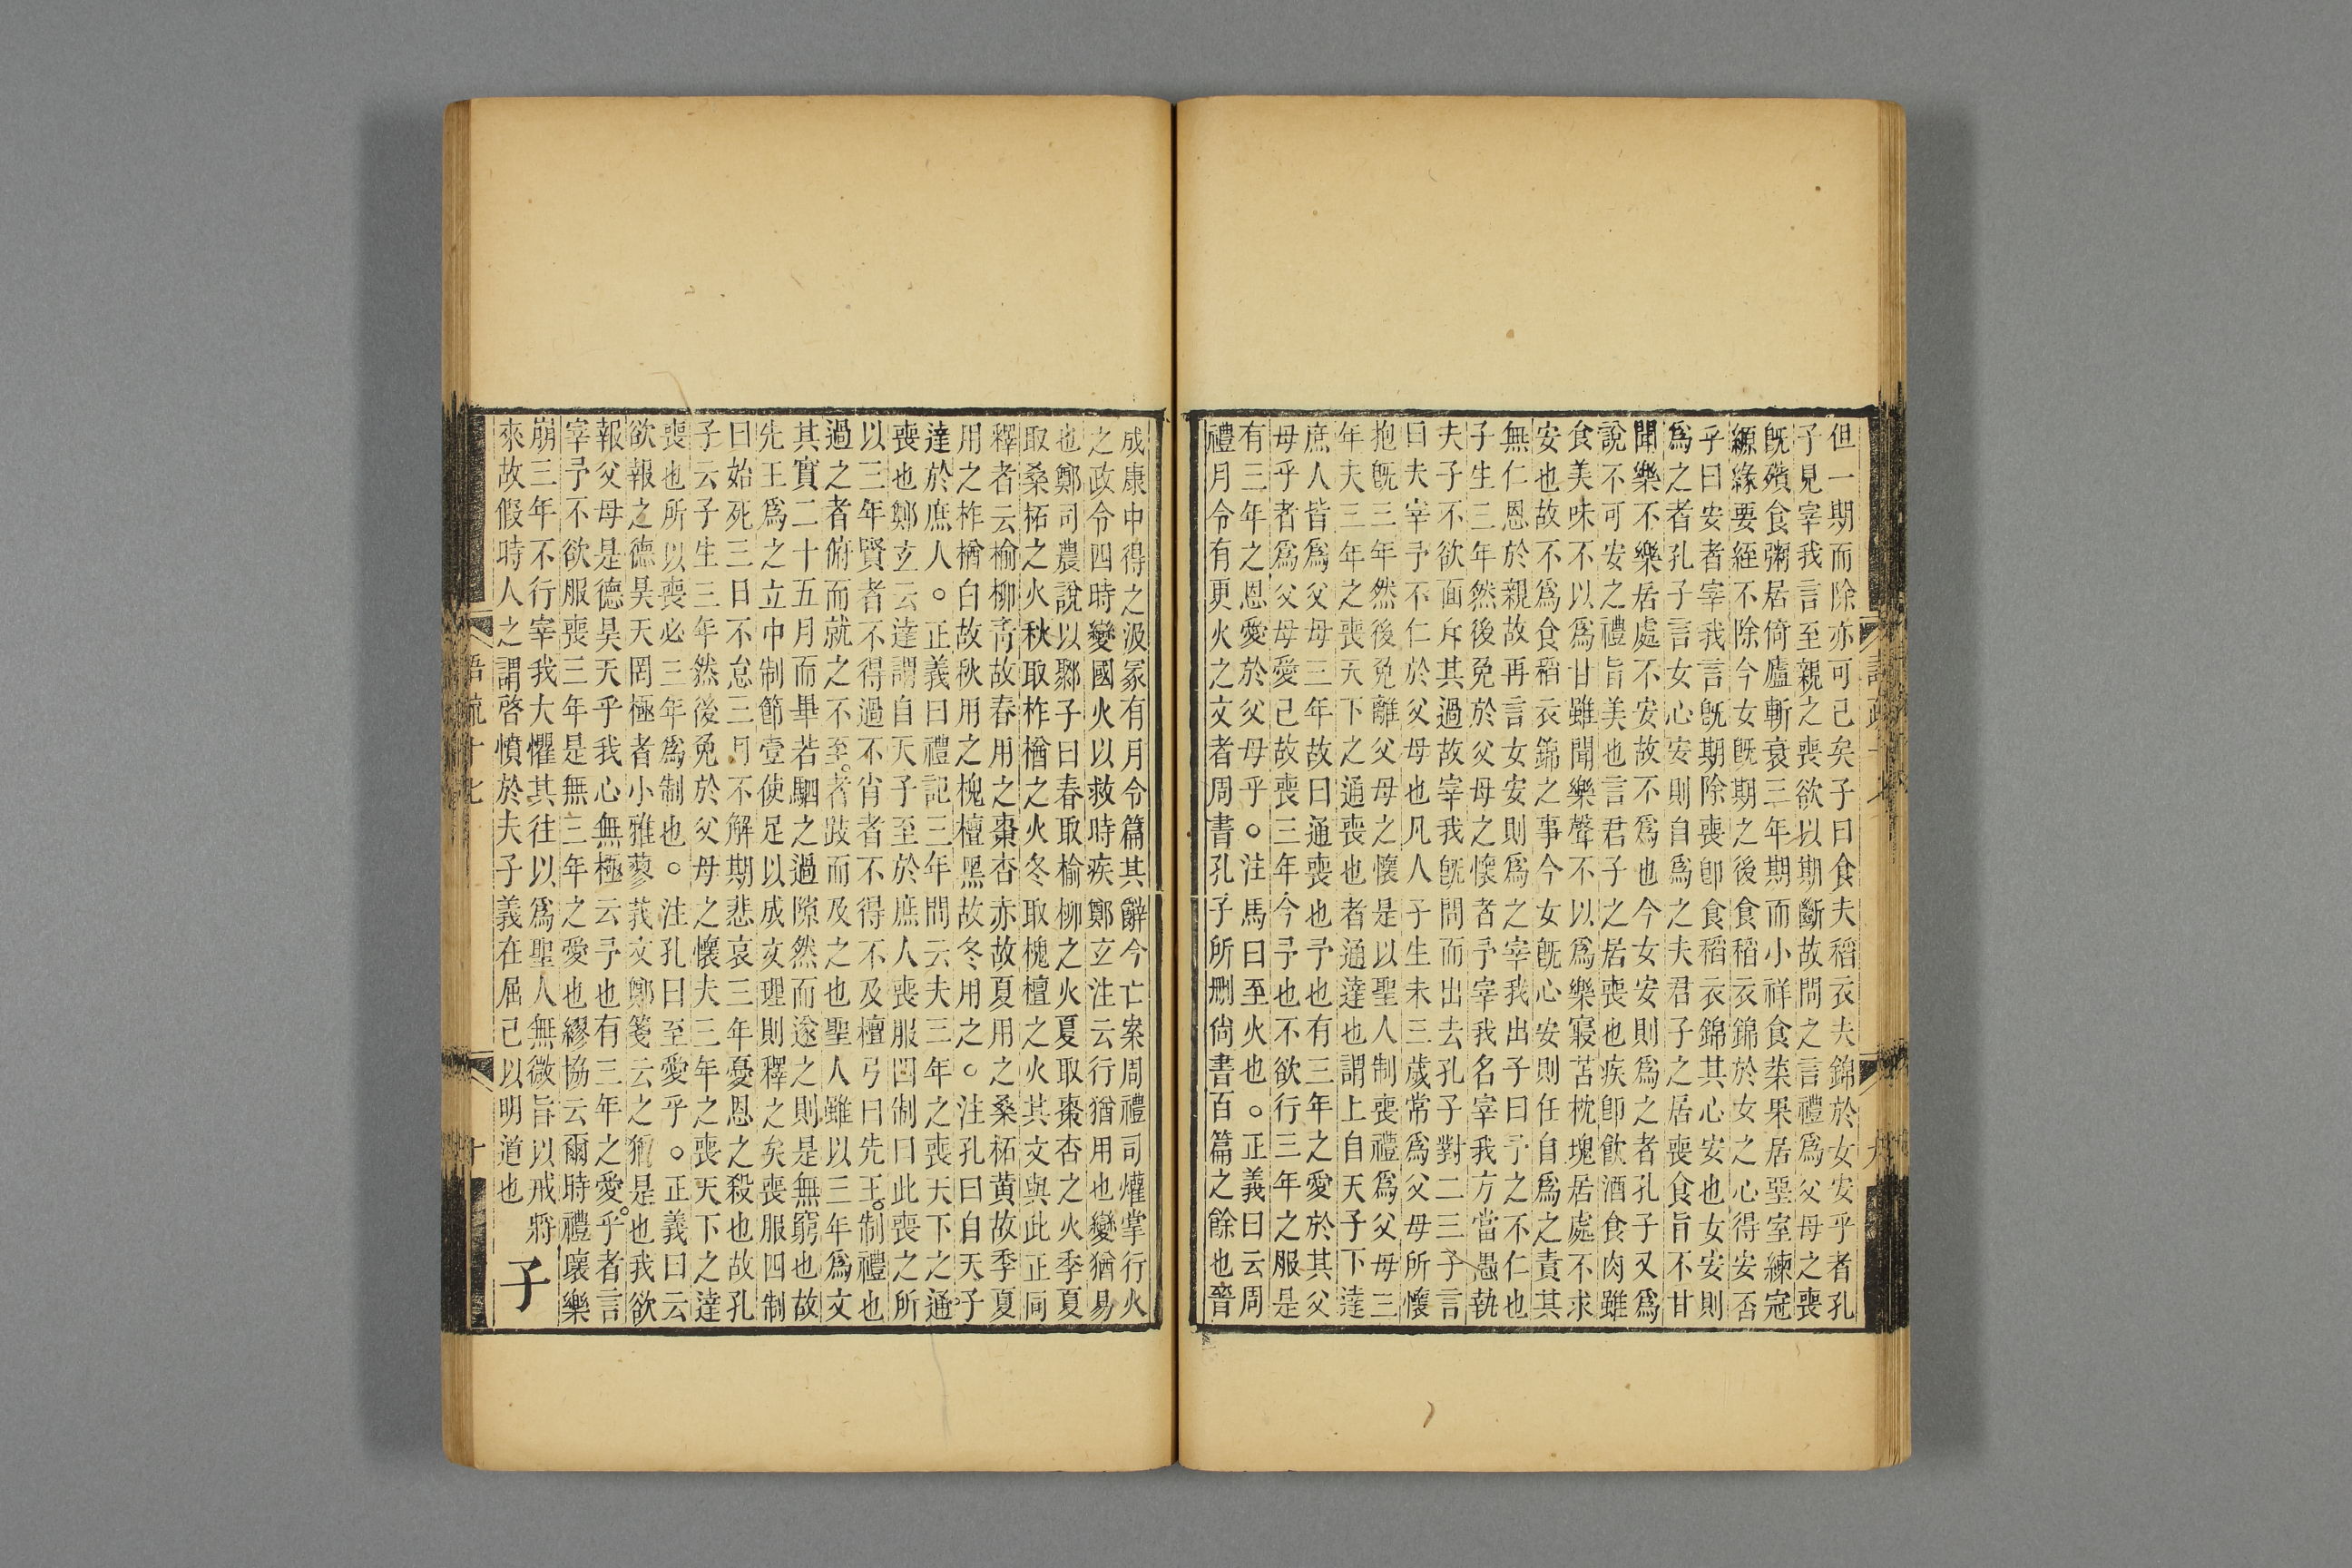 但一期而除亦可已矣子曰食夫稻衣夫錦於女安乎者孔
子見宰我言至親之喪欲以期斷故問之言禮為父母之喪
既殯食粥居倚廬斬衰三年期而小祥食菜果居堊室練冠
縓緣要絰不除今女既期之後食稻衣錦於女之心得安否
乎曰安者宰我言既期除喪即食稻衣錦其心安也女安則
為之者孔子言女心安則自為之夫君子之居喪食旨不甘
聞樂不樂居處不安故不為也今女安則為之者孔子又為
說不可安之禮旨美也言君子之居喪也疾即飲酒食肉雖
食美味不以為甘雖聞樂聲不以為樂寢苫枕塊居處不求
安也故不為食稻衣錦之事今女既心安則任自為之責其
無仁恩於親故再言女安則為之宰我出子曰予之不仁也
子生三年然後免於父母之懷者予宰我名宰我方當愚執
夫子不欲面斥其過故宰我既問而出去孔子對二三子言
曰夫宰予不仁於父母也凡人子生未三歲常為父母所懷
抱既三年然後免離父母之懷是以聖人制喪禮為父母三
年夫三年之喪天下之通喪也者通達也謂上自天子下達
庶人皆為父母三年故曰通喪也予也有三年之愛於其父
母乎者為父母愛己故喪三年今予也不欲行三年之服是
有三年之恩愛於父母乎○注馬曰至火也○正義曰云周
禮月令有更火之文者周書孔子所刪尚書百篇之餘也晉
成康中得之汲冢有月令篇其辭今亡案周禮司爟掌行火
之政令四時變國火以救時疾鄭玄注云行猶用也變猶易
也鄭司農說以鄹子曰春取榆柳之火夏取棗杏之火季夏
取桑柘之火秋取柞楢之火冬取槐檀之火其文與此正同
釋者云榆柳青故春用之棗杏赤故夏用之桑柘黃故季夏
用之柞楢白故秋用之槐檀黑故冬用之○注孔曰自天子
達於庶人○正義曰禮記三年問云夫三年之喪天下之通
喪也鄭玄云達謂自天子至於庶人喪服四制曰此喪之所
以三年賢者不得過不肖者不得不及檀弓曰先王制禮也
過之者俯而就之不至者跂而及之也聖人雖以三年為文
其實二十五月而畢若駟之過隙然而遂之則是無窮也故
先王為之立中制節壹使足以成文理則釋之矣喪服四制
曰始死三日不怠三月不解期悲哀三年憂恩之殺也故孔
子云子生三年然後免於父母之懷夫三年之喪天下之達
喪也所以喪必三年為制也○注孔曰至愛乎○正義曰云
欲報之德昊天罔極者小雅蓼莪文鄭箋云之猶是也我欲
報父母是德昊天乎我心無極云予也有三年之愛乎者言
宰予不欲服喪三年是無三年之愛也繆協云爾時禮壞樂
崩三年不行宰我大懼其往以為聖人無微旨以戒將
來故假時人之謂啓憤於夫子義在屈己以明道也 子